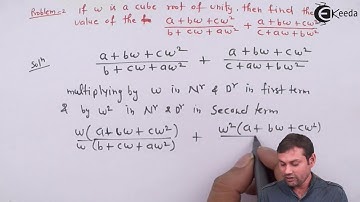 Problem:-2 If w is a cube root of unity, then find the
value of the (a+bw+cw²)/(b+cw+aw²) + (a+bw+cw²)/(c+aw+bw²)
Ekeeda
Solⁿ (a+bw+cw²)/(b+cw+aw²) + (a+bw+cw²)/(c+aw+bw²)
multiplying by w in Nʳ & Dʳ in first term
& by w² in Nʳ & Dʳ in second term
w(a+bw+cw²)/w(b+cw+aw²) + w²(a+bw+cw²)